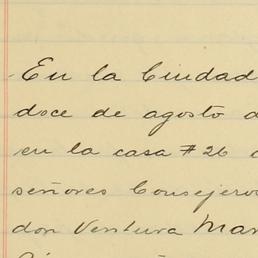 En la Ciudad
doce de agosto d
en la casa #26
señores Consejero
don Ventura Mar